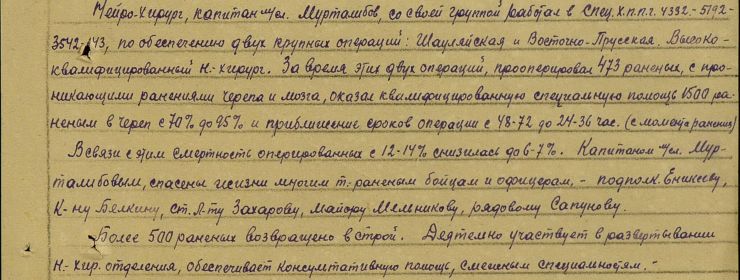 Нейро-Хирург, капитан м/сл. Мурталибов, со своей группой работал в Спец. Х.П.П.Г. 4332-5192-
3542-143, по обеспечению двух крупных операций: Шауляйская и Восточно-Прусская. Высоко-
квалифицированный Н.-хирург. За время этих двух операций, прооперировал 473 раненых, с про-
никающими ранениями черепа и мозга, оказал квалифицированную специальную помощь 1500 ра-
неным в череп с 70% до 95% и приближение сроков операции с 48-72 до 24-36 час. (с момента ранения)
В связи с этим смертность оперированных с 12-14% снизилась до 6-7%. Капитаном м/сл. Мур-
талибовым, спасены жизни многим т.-раненым бойцам и офицерам, - подполк. Еникееву,
К-ну Белкину, ст. Л-ту Захарову, майору Мельникову, рядовому Сапунову.
Более 500 раненых возвращено в строй. Деятельно участвует в развертывании
Н.-хир. отделения, обеспечивает консультативную помощь, смежным специальностям. -